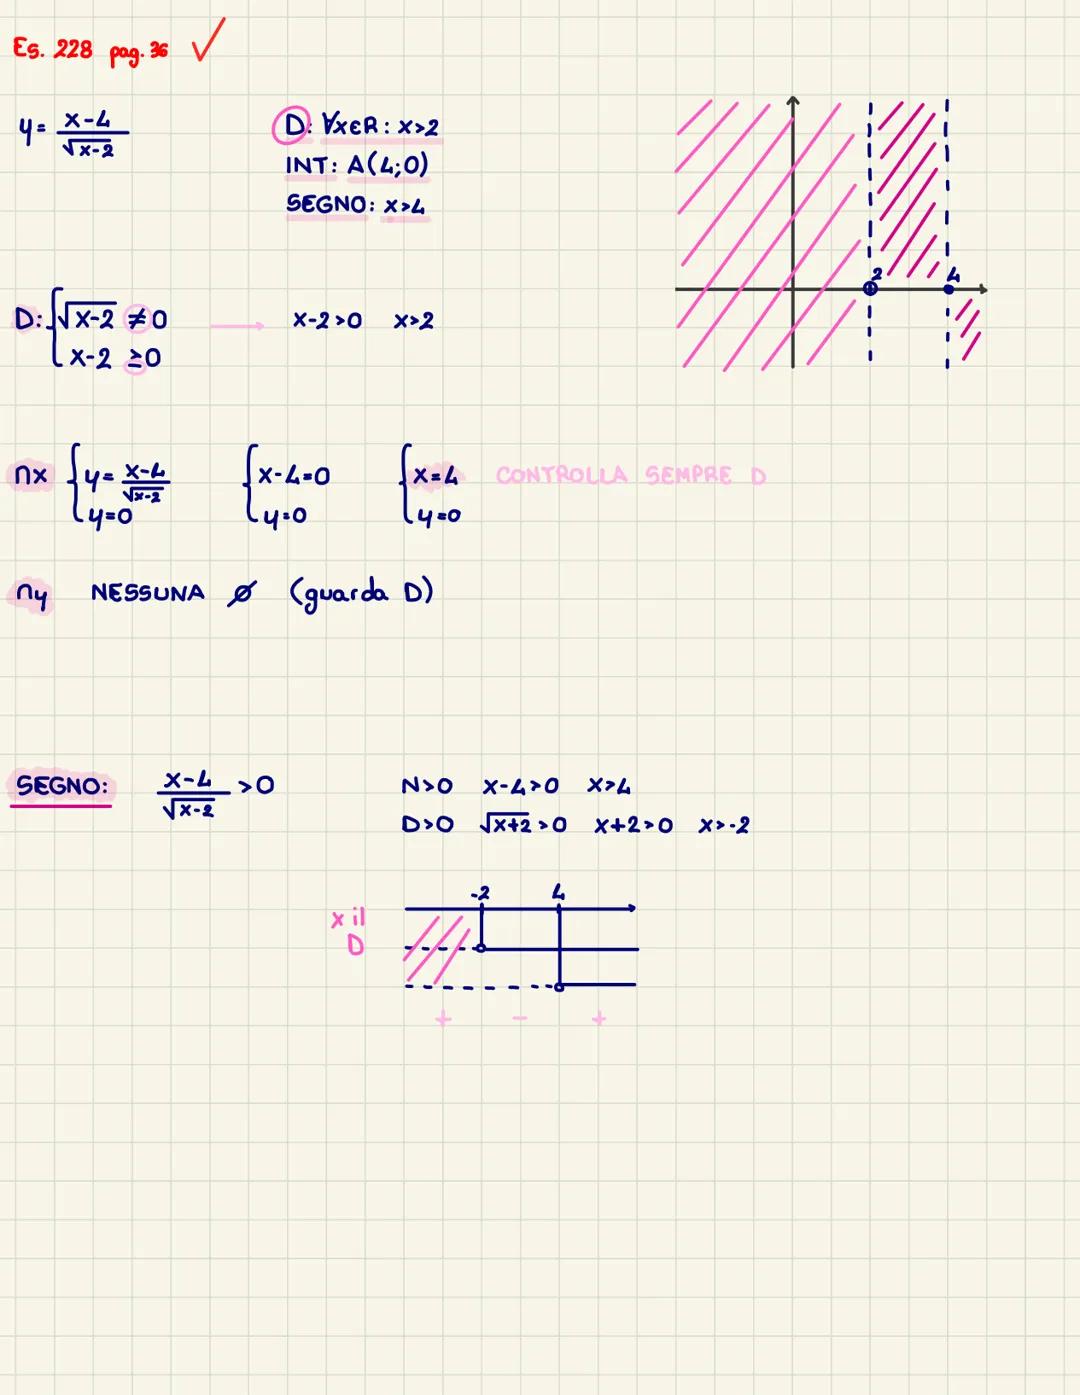 Es. 228 pag. 36 ✓
y = x-4 / √x-2
D: ∀x∈R : x>2
INT: A(4;0)
SEGNO: x>4
2 4
D: { √x-2 ≠0 → x-2>0 x>2
x-2 ≥0
∩x { y= x-4 / √x-2 { x-4=0 { x=4 CONTROLLA SEMPRE D
y=0 y=0 y=0
∩y NESSUNA ∅ (guarda D)
SEGNO: x-4 / √x-2 >0 N>0 x-4>0 x>4
D>0 √x+2>0 x+2>0 x>-2
-2 4
x il
D
+ - +